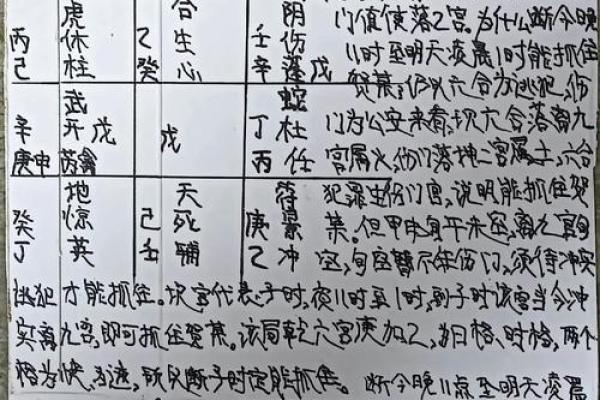 虎 合 阴
丙 休 乙 生 壬 伤
己 柱 癸 心 辛 蓬 戊
武 蛇
辛 开 戊 戊 丁 杜
庚申 芮禽 丙 任
地 天 符
癸 惊 己 死 庚 景
丁 英 壬 辅 乙 冲
门值使落乙宫。为什么断今晚
11时至明天凌晨1时能抓住
贺某,仍以六合为逃犯,伤
门为公安来看,现六合落离九
宫属火,伤门落坤二宫属土,六合
犯罪生伤门宫,说明能抓住贺
某。但甲申 午未空,离九宫旬
空,旬空暂不生伤门,须待冲实
逃犯才能抓住。坎宫代表子时,夜11时至1时,到子时该宫当令冲
实离九宫,即可抓住贺某。该局乾六宫庚加乙,为日格、时格,两个
格为快、为速,所以断子时定能抓住。 断今晚11点至明天凌晨